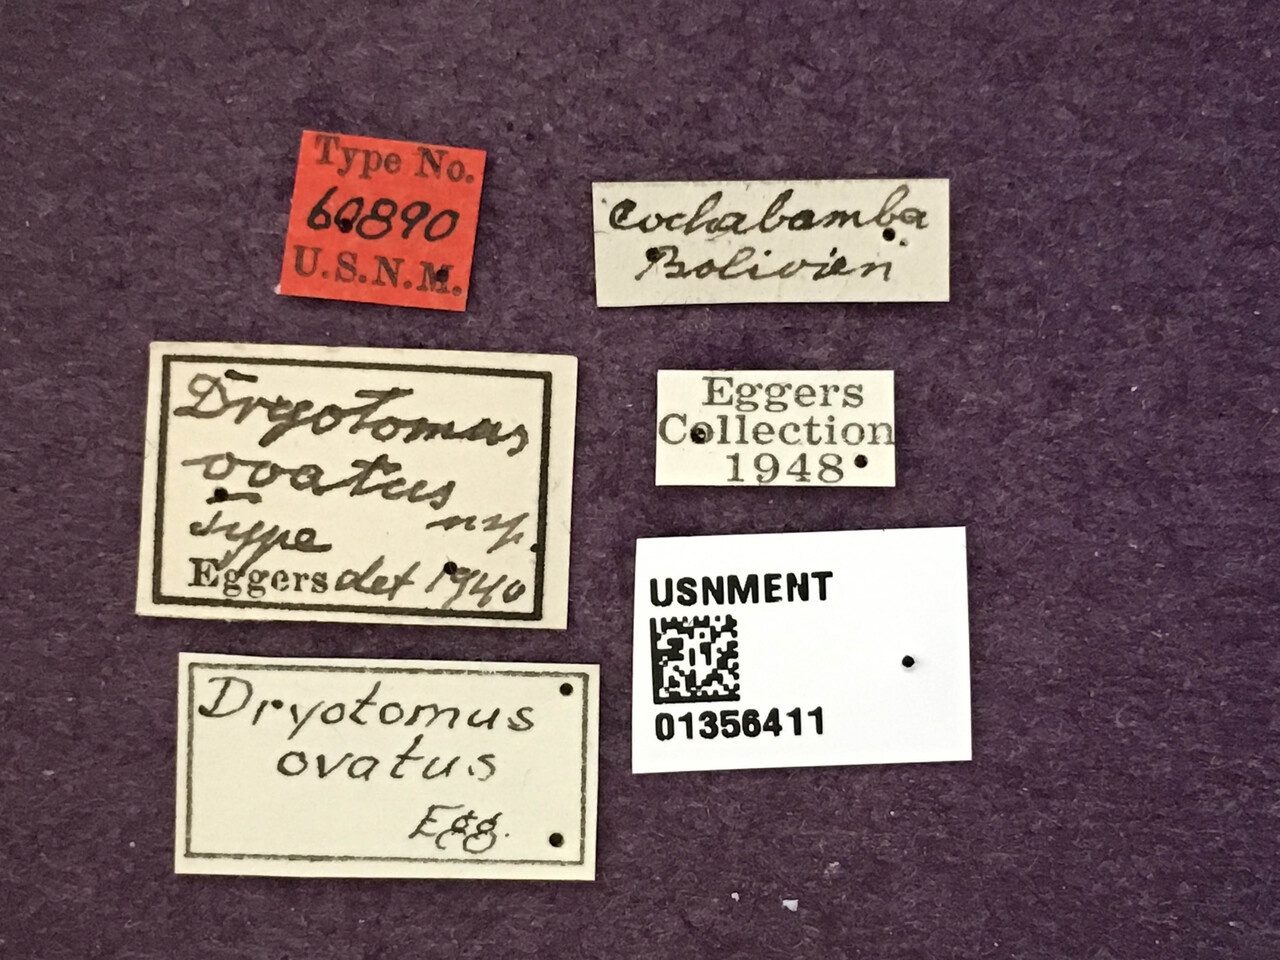 Type No.
60890
U.S.N.M.
Cochabamba
Bolivien
Dryotomus
ovatus
Type n.sp.
Eggers det 1940
Eggers
Collection
1948
USNMENT
01356411
Dryotomus
ovatus
Egg.